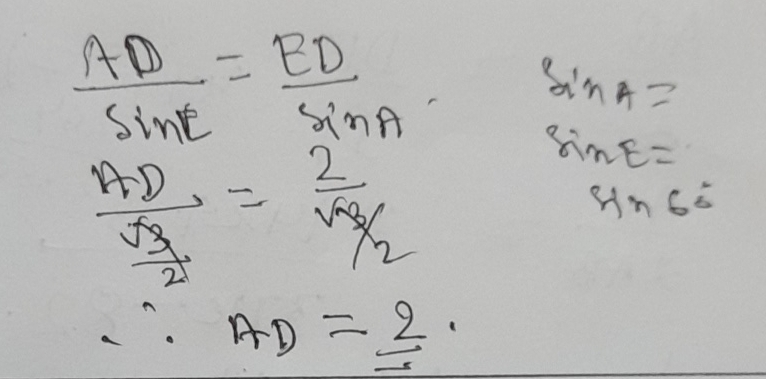 AD/sinE = ED/sinA
AD/(√3/2) = 2/(√3/2)
∴ AD = 2.
sinA =
sinE =
sin 60